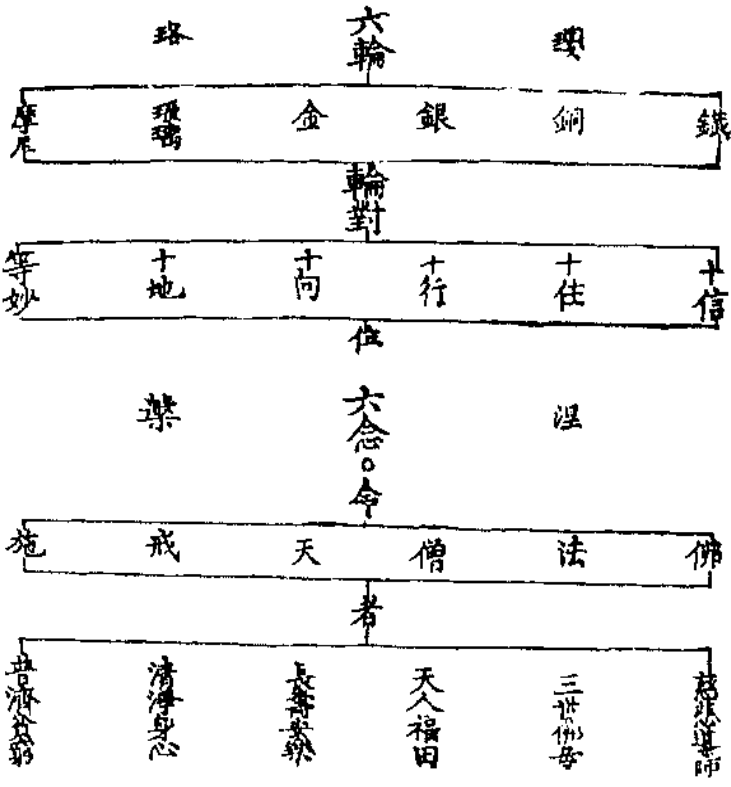 瓔 六輪 珞
鐵 銅 銀 金 瑠璃 摩尼
輪對
十信 十住 十行 十向 十地 等妙
位
涅 六念。令 槃
佛 法 僧 天 戒 施
者
慈悲導師 三世佛母 天人福田 長壽安樂 清淨身心 普濟貧窮